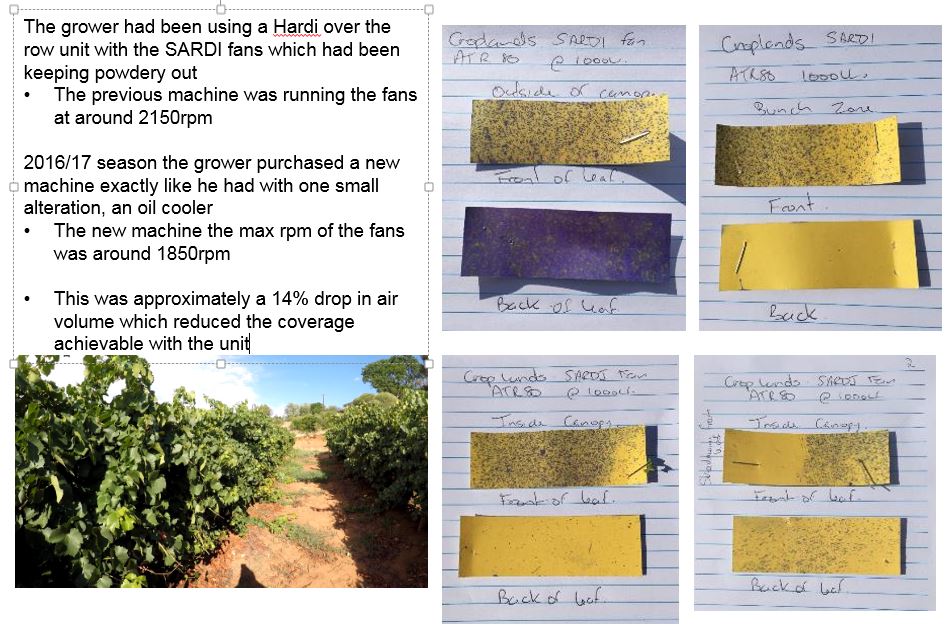 The grower had been using a Hardi over the
row unit with the SARDI fans which had been
keeping powdery out
• The previous machine was running the fans
at around 2150rpm
2016/17 season the grower purchased a new
machine exactly like he had with one small
alteration, an oil cooler
• The new machine the max rpm of the fans
was around 1850rpm
• This was approximately a 14% drop in air
volume which reduced the coverage
achievable with the unit
Croplands SARDI fan
ATR 80 @ 1000L.
Outside of canopy
Front of leaf.
Back of leaf
Croplands SARDI
ATR80 1000L.
Bunch Zone
Front.
Back
Croplands SARDI Fan
ATR80 @ 1000L.
Inside Canopy.
Front of leaf.
Back of leaf.
2
Croplands SARDI Fan
ATR80 @ 1000L
Inside Canopy.
Front of leaf.
Back of leaf.